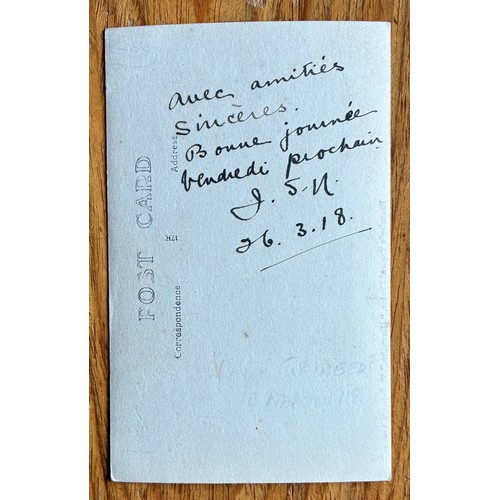 avec amitiés
sincères.
Bonne journée
Vendredi prochain
J. S. N.
26. 3. 18.
POST CARD
Address
Correspondence